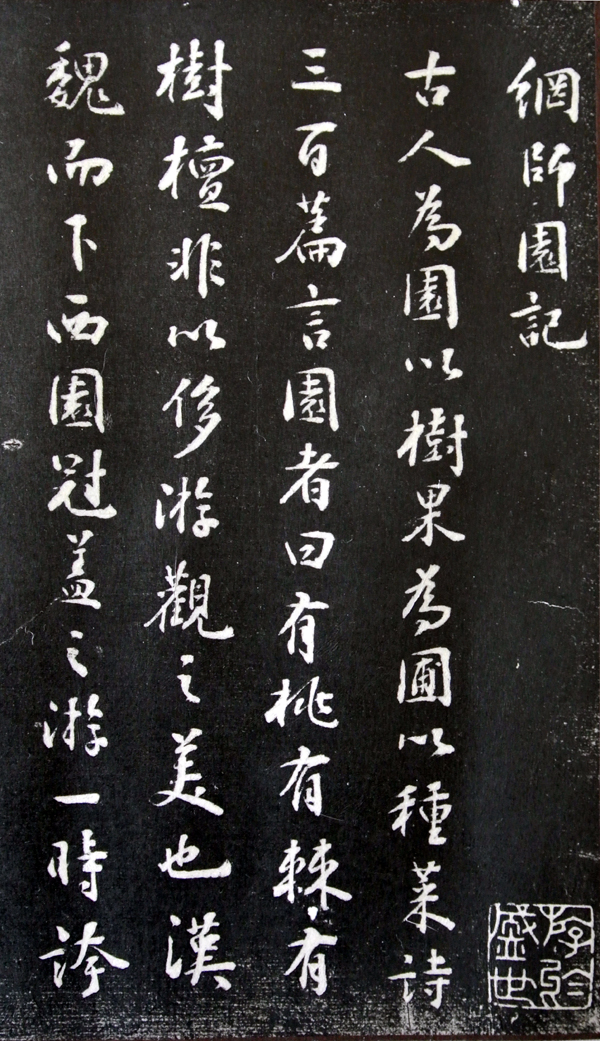 網師園記
古人為園以樹果為圃以種菜詩
三百篇言園者曰有桃有棘有
樹檀非以侈游觀之美也漢
魏而下西園冠蓋之游一時誇